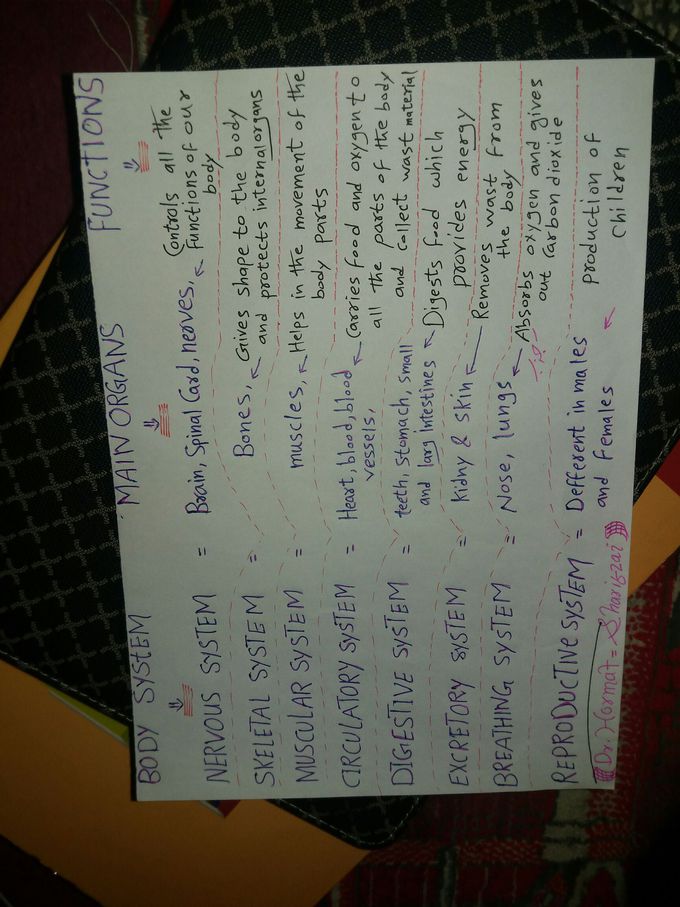 BODY SYSTEM MAIN ORGANS FUNCTIONS
NERVOUS SYSTEM = Brain, Spinal Card, nerves, Controls all the
functions of our
body
SKELETAL SYSTEM = Bones, Gives shape to the body
and protects internal organs
MUSCULAR SYSTEM = muscles, Helps in the movement of the
body parts
CIRCULATORY SYSTEM = Heart, blood, blood Carries food and oxygen to
vessels, all the parts of the body
and collect wast material
DIGESTIVE SYSTEM = teeth, stomach, small Digests food which
and larg intestines provides energy
EXCRETORY SYSTEM = Kidny & skin Removes wast from
the body
BREATHING SYSTEM = Nose, lungs Absorbs oxygen and gives
out carbon dioxide
REPRODUCTIVE SYSTEM = Defferent in males production of
and females children
Dr. Hormat = Sharifzai